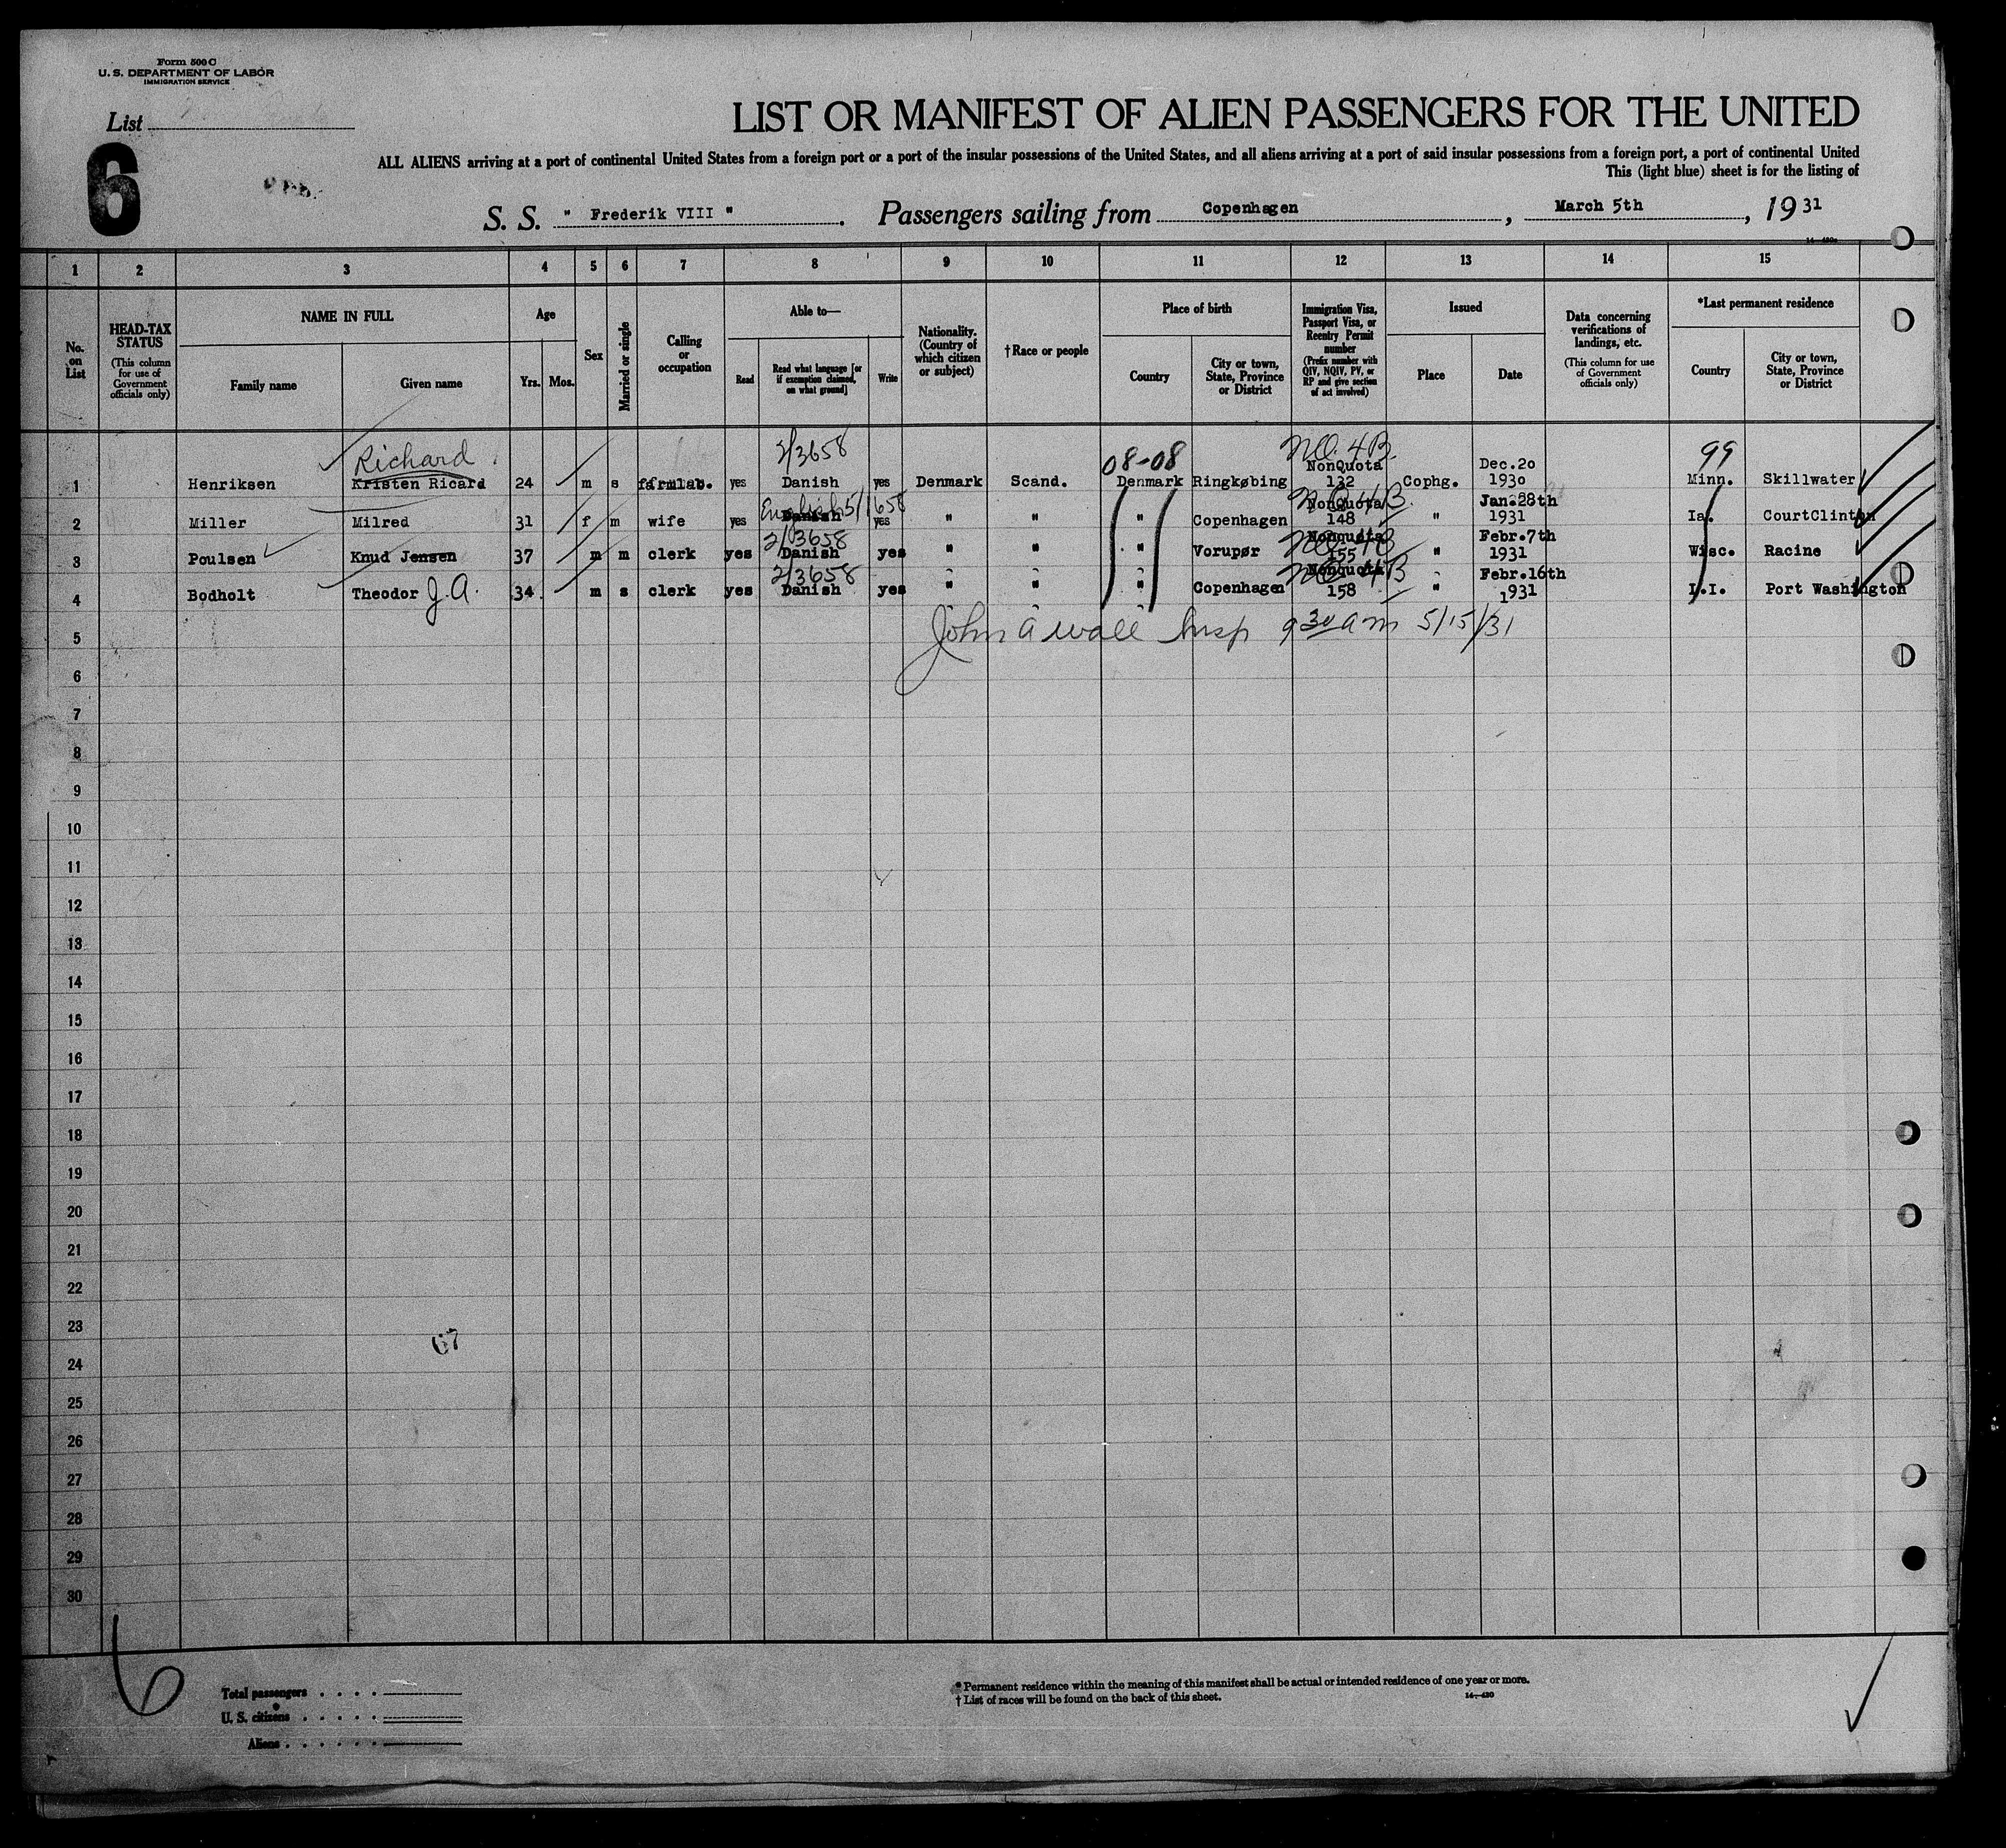 Form 500 C
U. S. DEPARTMENT OF LABOR
IMMIGRATION SERVICE
List
6
LIST OR MANIFEST OF ALIEN PASSENGERS FOR THE UNITED
ALL ALIENS arriving at a port of continental United States from a foreign port or a port of the insular possessions of the United States, and all aliens arriving at a port of said insular possessions from a foreign port, a port of continental United
This (light blue) sheet is for the listing of
S. S. " Frederik VIII ". Passengers sailing from Copenhagen, March 5th, 1931
1 2 3 4 5 6 7 8 9 10 11 12 13 14 15
No. on List
HEAD-TAX STATUS (This column for use of Government officials only)
NAME IN FULL
Family name Given name
Age
Yrs. Mos.
Sex
Married or single
Calling or occupation
Able to—
Read
Read what language [or if exemption claimed, on what ground]
Write
Nationality. (Country of which citizen or subject)
†Race or people
Place of birth
Country
City or town, State, Province or District
Immigration Visa, Passport Visa, or Reentry Permit number (Prefix number with QIV, NQIV, PV, or RP and give section of act involved)
Issued
Place Date
Data concerning verifications of landings, etc. (This column for use of Government officials only)
*Last permanent residence
Country
City or town, State, Province or District
Richard 2/3658 08-08 N.Q. 4B 99
1 Henriksen Kristen Ricard 24 m s farmlab. yes Danish yes Denmark Scand. Denmark Ringkøbing NonQuota 132 Cophg. Dec.20 1930 Minn. Skillwater
English 5/1658 N.Q. 4B
2 Miller Milred 31 f m wife yes Danish yes " " " Copenhagen NonQuota 148 " Jan.28th 1931 Ia. CourtClinton
2/3658 N.Q. 4B
3 Poulsen Knud Jensen 37 m m clerk yes Danish yes " " " Vorupør Nonquota 155 " Febr.7th 1931 Wisc. Racine
2/3658 N.Q. 4B
4 Bodholt Theodor J.A. 34 m s clerk yes Danish yes " " " Copenhagen Nonquota 158 " Febr.16th 1931 L.I. Port Washington
5 John A Wall Insp 9 30 am 5/15/31
6
7
8
9
10
11
12
13
14
15
16
17
18
19
20
21
22
23
67
24
25
26
27
28
29
30
6
Total passengers
U. S. citizens
Aliens
* Permanent residence within the meaning of this manifest shall be actual or intended residence of one year or more.
† List of races will be found on the back of this sheet.
14—430